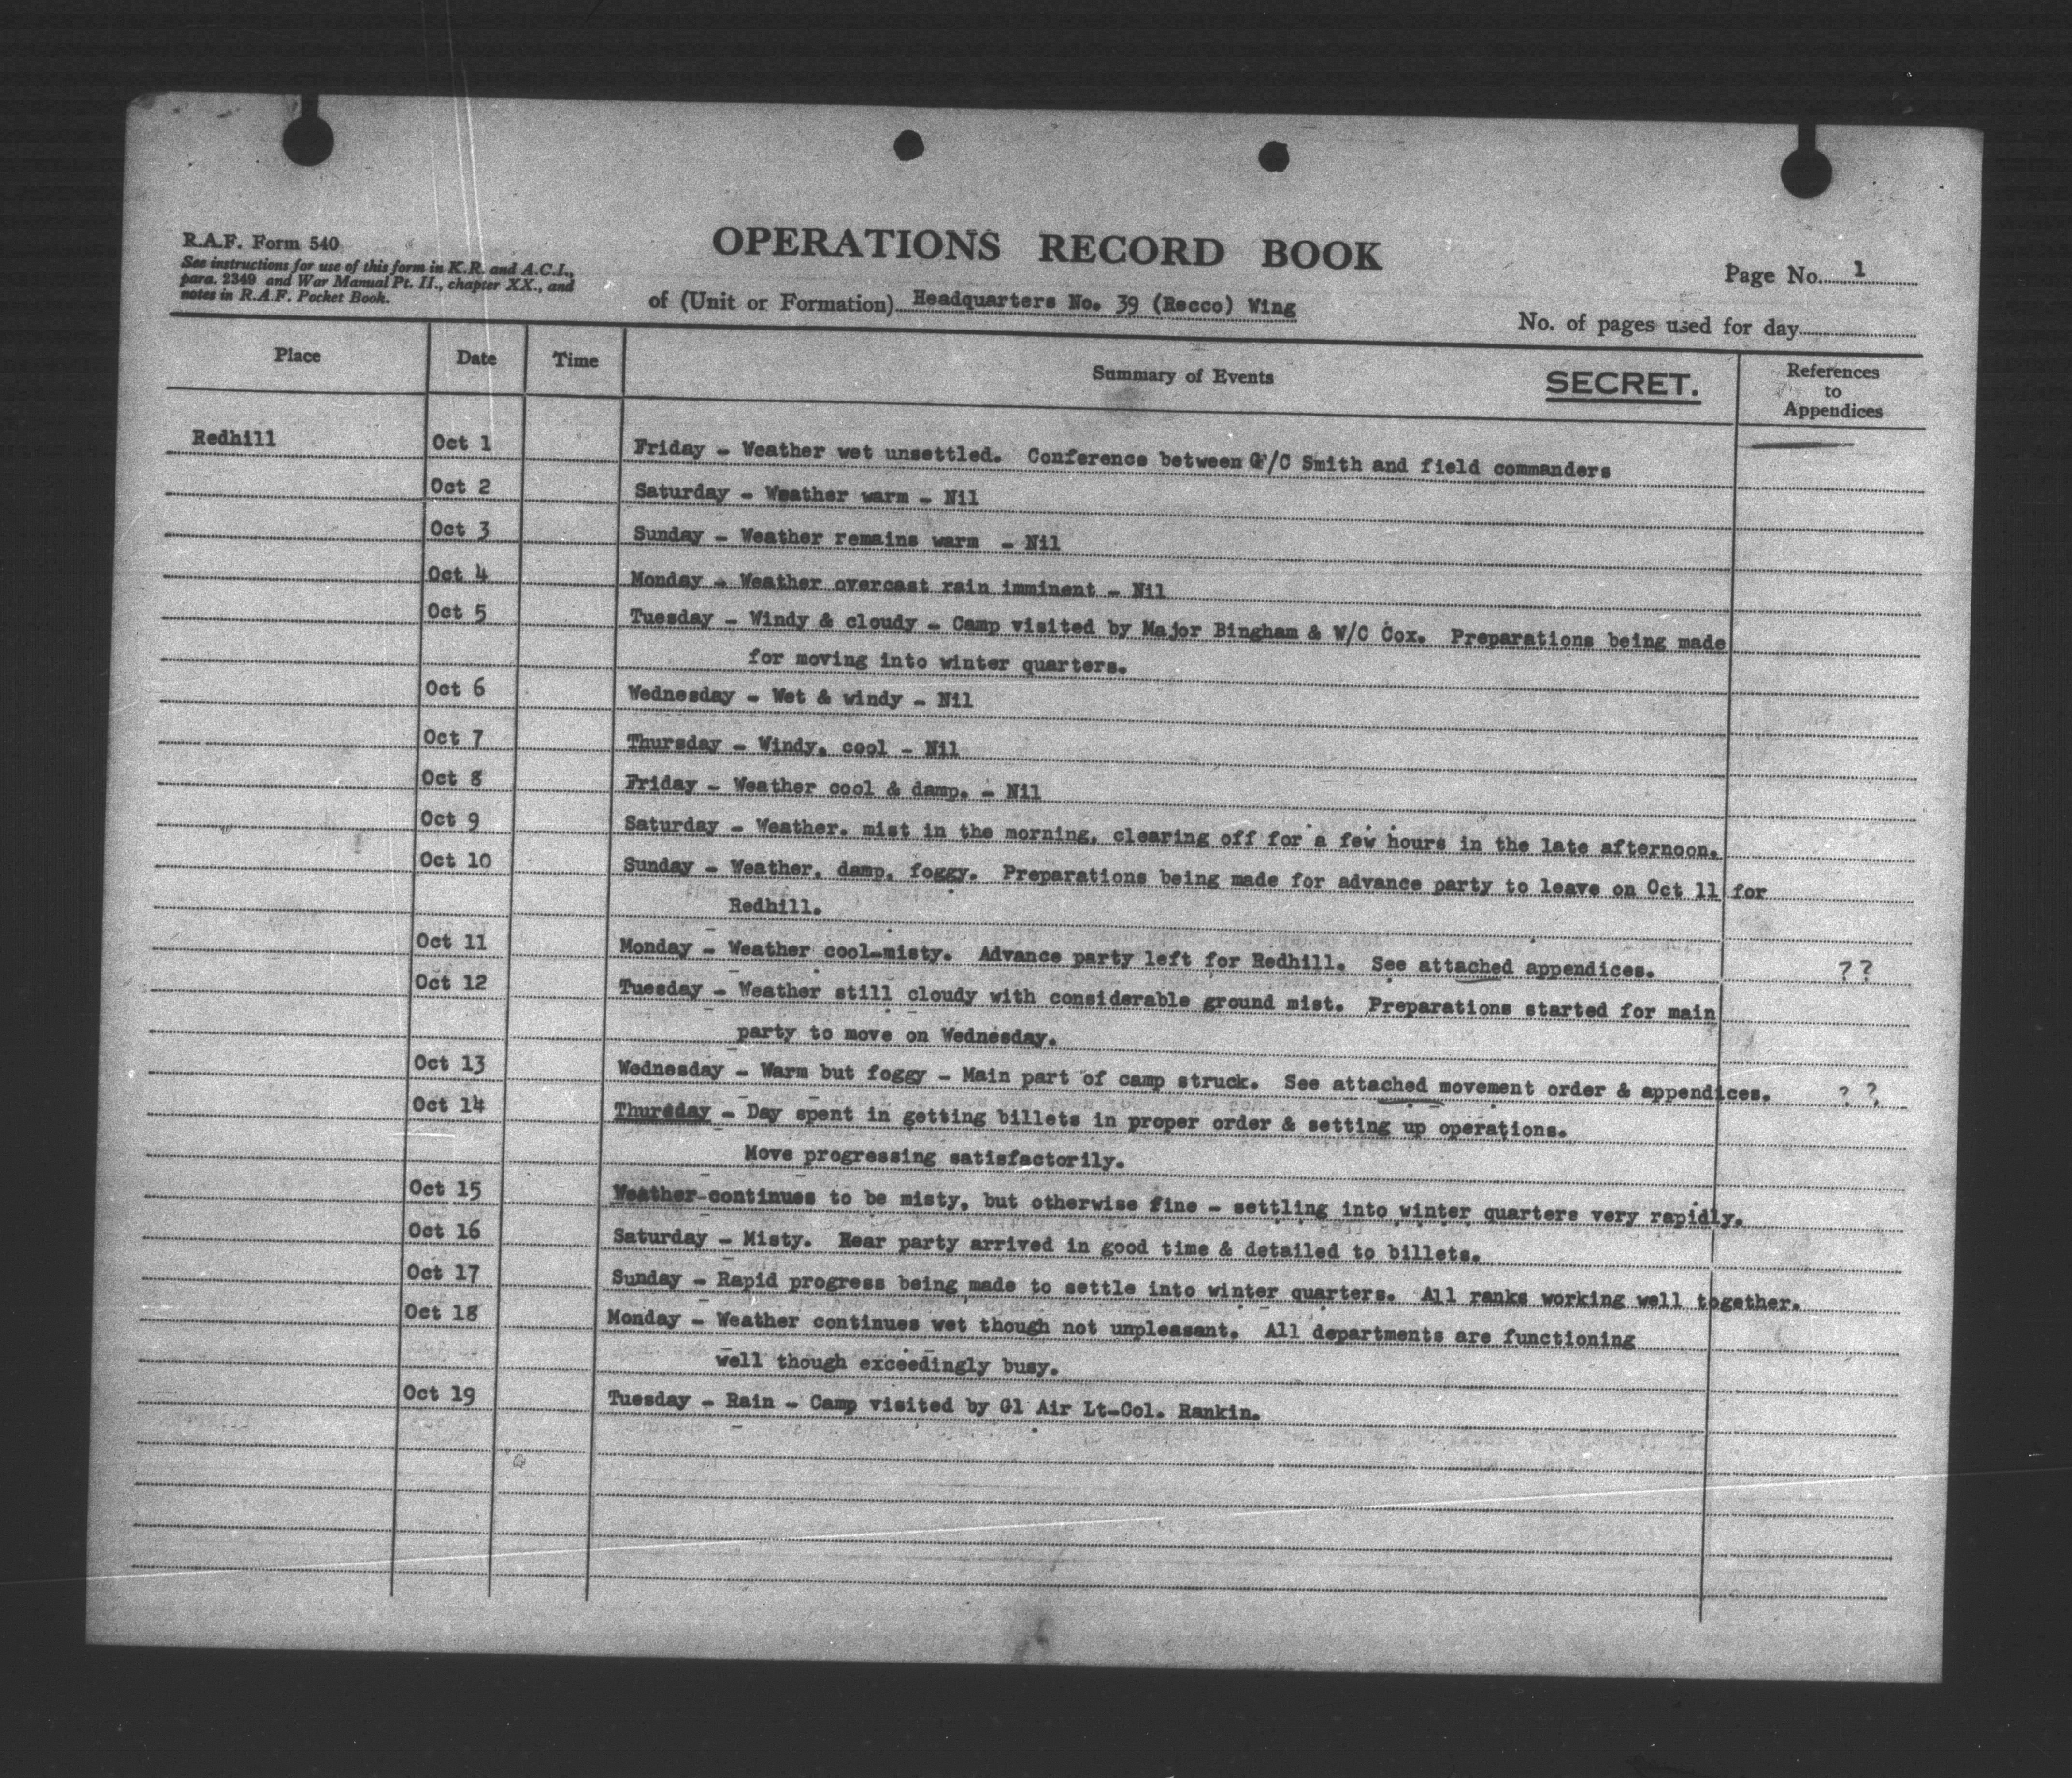 R.A.F. Form 540
See instructions for use of this form in K.R. and A.C.I.,
para. 2349 and War Manual Pt. II., chapter XX., and
notes in R.A.F. Pocket Book.
OPERATIONS RECORD BOOK
of (Unit or Formation) Headquarters No. 39 (Recco) Wing
Page No. 1
No. of pages used for day
Place Date Time Summary of Events SECRET. References to Appendices
Redhill Oct 1 Friday - Weather wet unsettled. Conference between G/C Smith and field commanders
Oct 2 Saturday - Weather warm - Nil
Oct 3 Sunday - Weather remains warm - Nil
Oct 4 Monday - Weather overcast rain imminent - Nil
Oct 5 Tuesday - Windy & cloudy - Camp visited by Major Bingham & W/C Cox. Preparations being made
for moving into winter quarters.
Oct 6 Wednesday - Wet & windy - Nil
Oct 7 Thursday - Windy, cool - Nil
Oct 8 Friday - Weather cool & damp. - Nil
Oct 9 Saturday - Weather, mist in the morning, clearing off for a few hours in the late afternoon.
Oct 10 Sunday - Weather, damp, foggy. Preparations being made for advance party to leave on Oct 11 for
Redhill.
Oct 11 Monday - Weather cool-misty. Advance party left for Redhill. See attached appendices. ??
Oct 12 Tuesday - Weather still cloudy with considerable ground mist. Preparations started for main
party to move on Wednesday.
Oct 13 Wednesday - Warm but foggy - Main part of camp struck. See attached movement order & appendices. ??
Oct 14 Thursday - Day spent in getting billets in proper order & setting up operations.
Move progressing satisfactorily.
Oct 15 Weather continues to be misty, but otherwise fine - settling into winter quarters very rapidly.
Oct 16 Saturday - Misty. Rear party arrived in good time & detailed to billets.
Oct 17 Sunday - Rapid progress being made to settle into winter quarters. All ranks working well together.
Oct 18 Monday - Weather continues wet though not unpleasant. All departments are functioning
well though exceedingly busy.
Oct 19 Tuesday - Rain - Camp visited by Gl Air Lt-Col. Rankin.